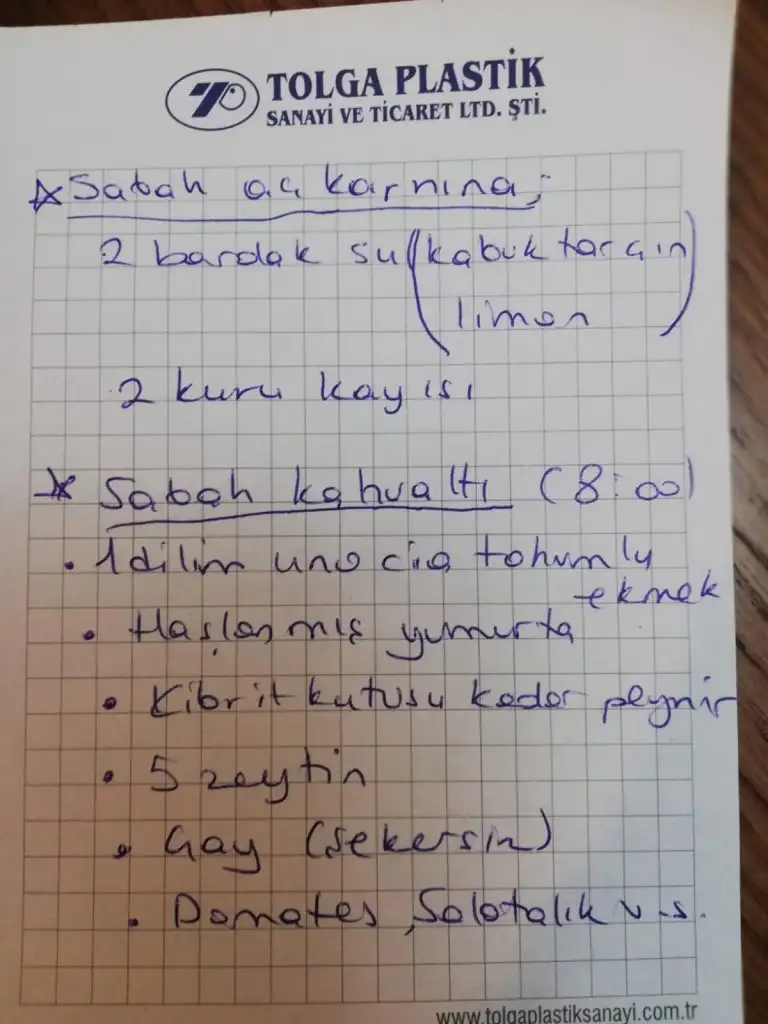 TOLGA PLASTİK
SANAYİ VE TİCARET LTD. ŞTİ.
Sabah aç karnına;
2 bardak su (kabuk tarçın
limon)
2 kuru kayısı
Sabah kahvaltı (8:00)
• 1 dilim uno çia tohumlu
ekmek
• Haşlanmış yumurta
• Kibrit kutusu kadar peynir
• 5 zeytin
• Çay (şekersin)
• Domates, Salatalık v.s.
www.tolgaplastiksanayi.com.tr